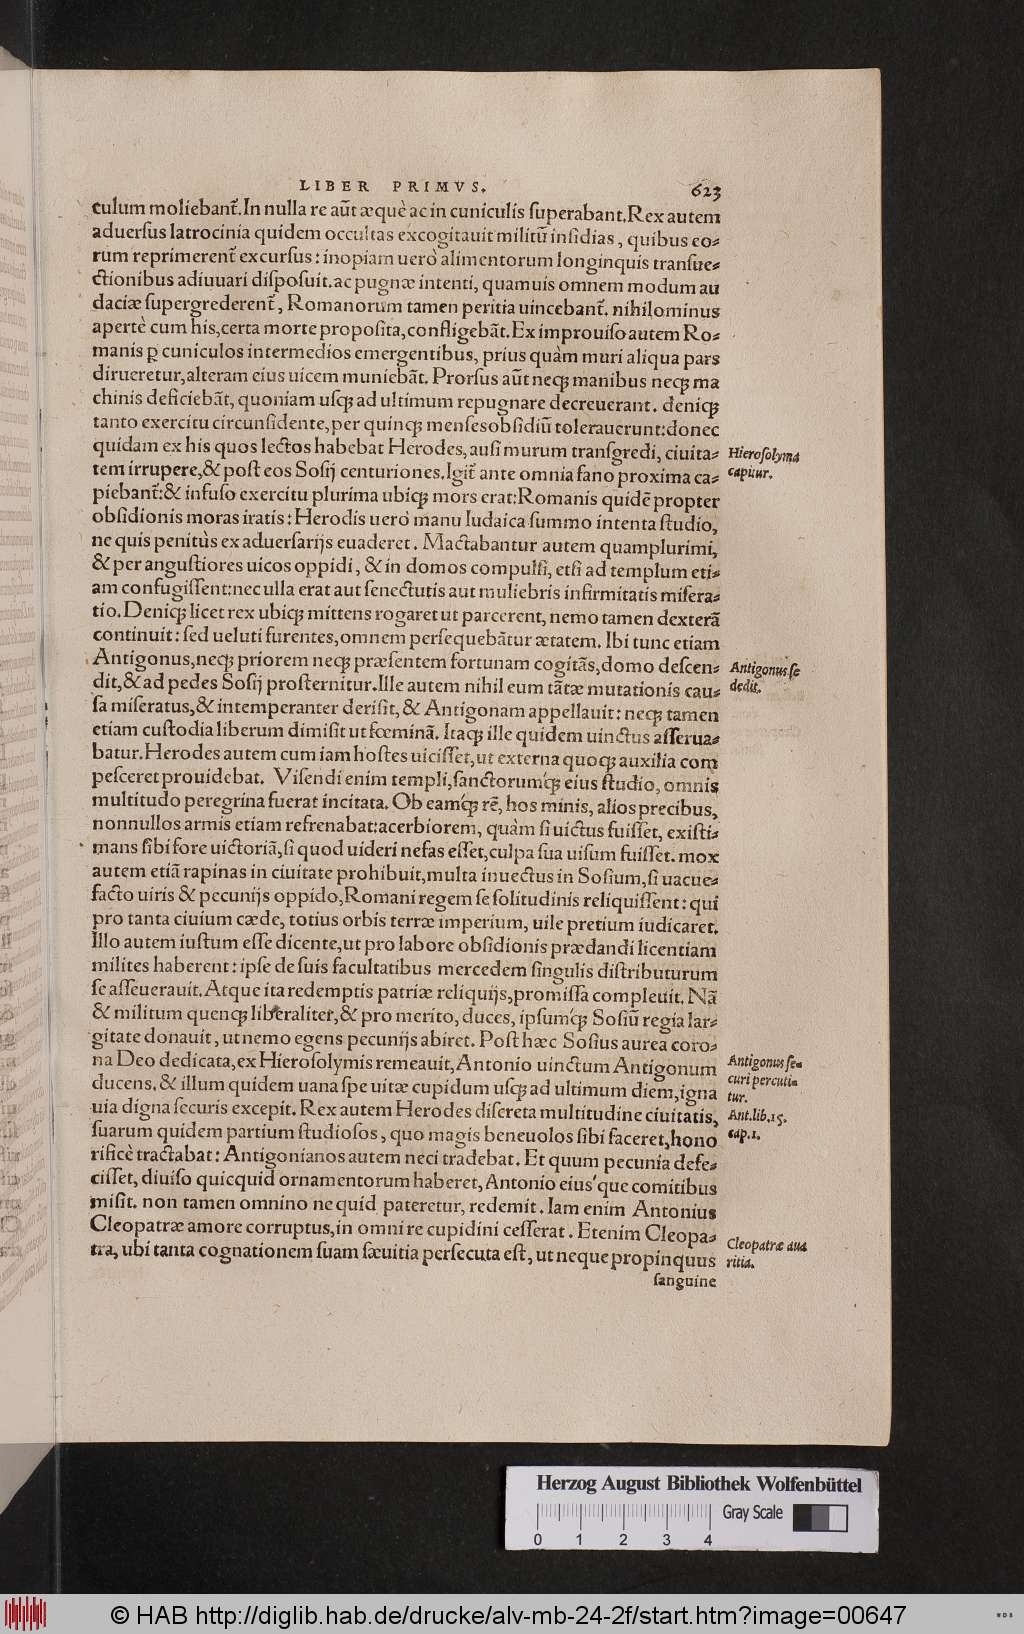 LIBER PRIMVS. 623
culum moliebant᷑. In nulla re aũt æquè ac in cuniculis ſuperabant. Rex autem
aduerſus latrocinia quidem occultas excogitauit militũ inſidias, quibus eo-
rum reprimerent᷑ excurſus: inopiam uerò alimentorum longinquis tranſue-
ctionibus adiuuari diſpoſuit. ac pugnæ intenti, quamuis omnem modum au
daciæ ſupergrederent᷑, Romanorum tamen peritia uincebant᷑. nihilominus
apertè cum his, certa morte propoſita, confligebãt. Ex improuiſo autem Ro-
manis ꝑ cuniculos intermedios emergentibus, prius quàm muri aliqua pars
dirueretur, alteram eius uicem muniebãt. Prorſus aũt neqꝫ manibus neqꝫ ma
chinis deficiebãt, quoniam uſqꝫ ad ultimum repugnare decreuerant. deniqꝫ
tanto exercitu circunſidente, per quinqꝫ menſes obſidiũ tolerauerunt: donec
quidam ex his quos lectos habebat Herodes, auſi murum tranſgredi, ciuita-
tem irrupere, & poſt eos Soſij centuriones. Igit᷑ ante omnia fano proxima ca-
piebant᷑: & infuſo exercitu plurima ubiqꝫ mors erat: Romanis quidẽ propter
obſidionis moras iratis: Herodis uerò manu Iudaica ſummo intenta ſtudio,
ne quis penitùs ex aduerſarijs euaderet. Mactabantur autem quamplurimi,
& per anguſtiores uicos oppidi, & in domos compulſi, etſi ad templum eti-
am confugiſſent: nec ulla erat aut ſenectutis aut muliebris infirmitatis miſera-
tio. Deniqꝫ licet rex ubiqꝫ mittens rogaret ut parcerent, nemo tamen dexterã
continuit: ſed ueluti furentes, omnem perſequebãtur ætatem. Ibi tunc etiam
Antigonus, neqꝫ priorem neqꝫ præſentem fortunam cogitãs, domo deſcen-
dit, & ad pedes Soſij proſternitur. Ille autem nihil eum tãtæ mutationis cau-
ſa miſeratus, & intemperanter deriſit, & Antigonam appellauit: neqꝫ tamen
etiam cuſtodia liberum dimiſit ut fœminã. Itaqꝫ ille quidem uinctus aſſerua-
batur. Herodes autem cum iam hoſtes uiciſſet, ut externa quoqꝫ auxilia com
peſceret prouidebat. Viſendi enim templi, ſanctorumq́ꝫ eius ſtudio, omnis
multitudo peregrina fuerat incitata. Ob eamq́ꝫ rẽ, hos minis, alios precibus,
nonnullos armis etiam refrenabat: acerbiorem, quàm ſi uictus fuiſſet, exiſti-
mans ſibi fore uictoriã, ſi quod uideri nefas eſſet, culpa ſua uiſum fuiſſet. mox
autem etiã rapinas in ciuitate prohibuit, multa inuectus in Soſium, ſi uacue-
facto uiris & pecunijs oppido, Romani regem ſe ſolitudinis reliquiſſent: qui
pro tanta ciuium cæde, totius orbis terræ imperium, uile pretium iudicaret.
Illo autem iuſtum eſſe dicente, ut pro labore obſidionis prædandi licentiam
milites haberent: ipſe de ſuis facultatibus mercedem ſingulis diſtributurum
ſe aſſeuerauit. Atque ita redemptis patriæ reliquijs, promiſſa compleuit. Nã
& militum quenqꝫ liberaliter, & pro merito, duces, ipſumq́ꝫ Soſiũ regia lar-
gitate donauit, ut nemo egens pecunijs abiret. Poſt hæc Soſius aurea coro-
na Deo dedicata, ex Hieroſolymis remeauit, Antonio uinctum Antigonum
ducens. & illum quidem uana ſpe uitæ cupidum uſqꝫ ad ultimum diem, igna
uia digna ſecuris excepit. Rex autem Herodes diſcreta multitudine ciuitatis,
ſuarum quidem partium ſtudioſos, quo magis beneuolos ſibi faceret, hono
rificè tractabat: Antigonianos autem neci tradebat. Et quum pecunia defe-
ciſſet, diuiſo quicquid ornamentorum haberet, Antonio eius'que comitibus
miſit. non tamen omnino ne quid pateretur, redemit. Iam enim Antonius
Cleopatræ amore corruptus, in omni re cupidini ceſſerat. Etenim Cleopa-
tra, ubi tanta cognationem ſuam ſæuitia perſecuta eſt, ut neque propinquus
ſanguine
Hieroſolyma
capitur.
Antigonus ſe
dedit.
Antigonus ſe-
curi percuti-
tur.
Ant.lib.15.
cap.1.
Cleopatræ aua
ritia.
Herzog August Bibliothek Wolfenbüttel
Gray Scale
0 1 2 3 4
© HAB http://diglib.hab.de/drucke/alv-mb-24-2f/start.htm?image=00647